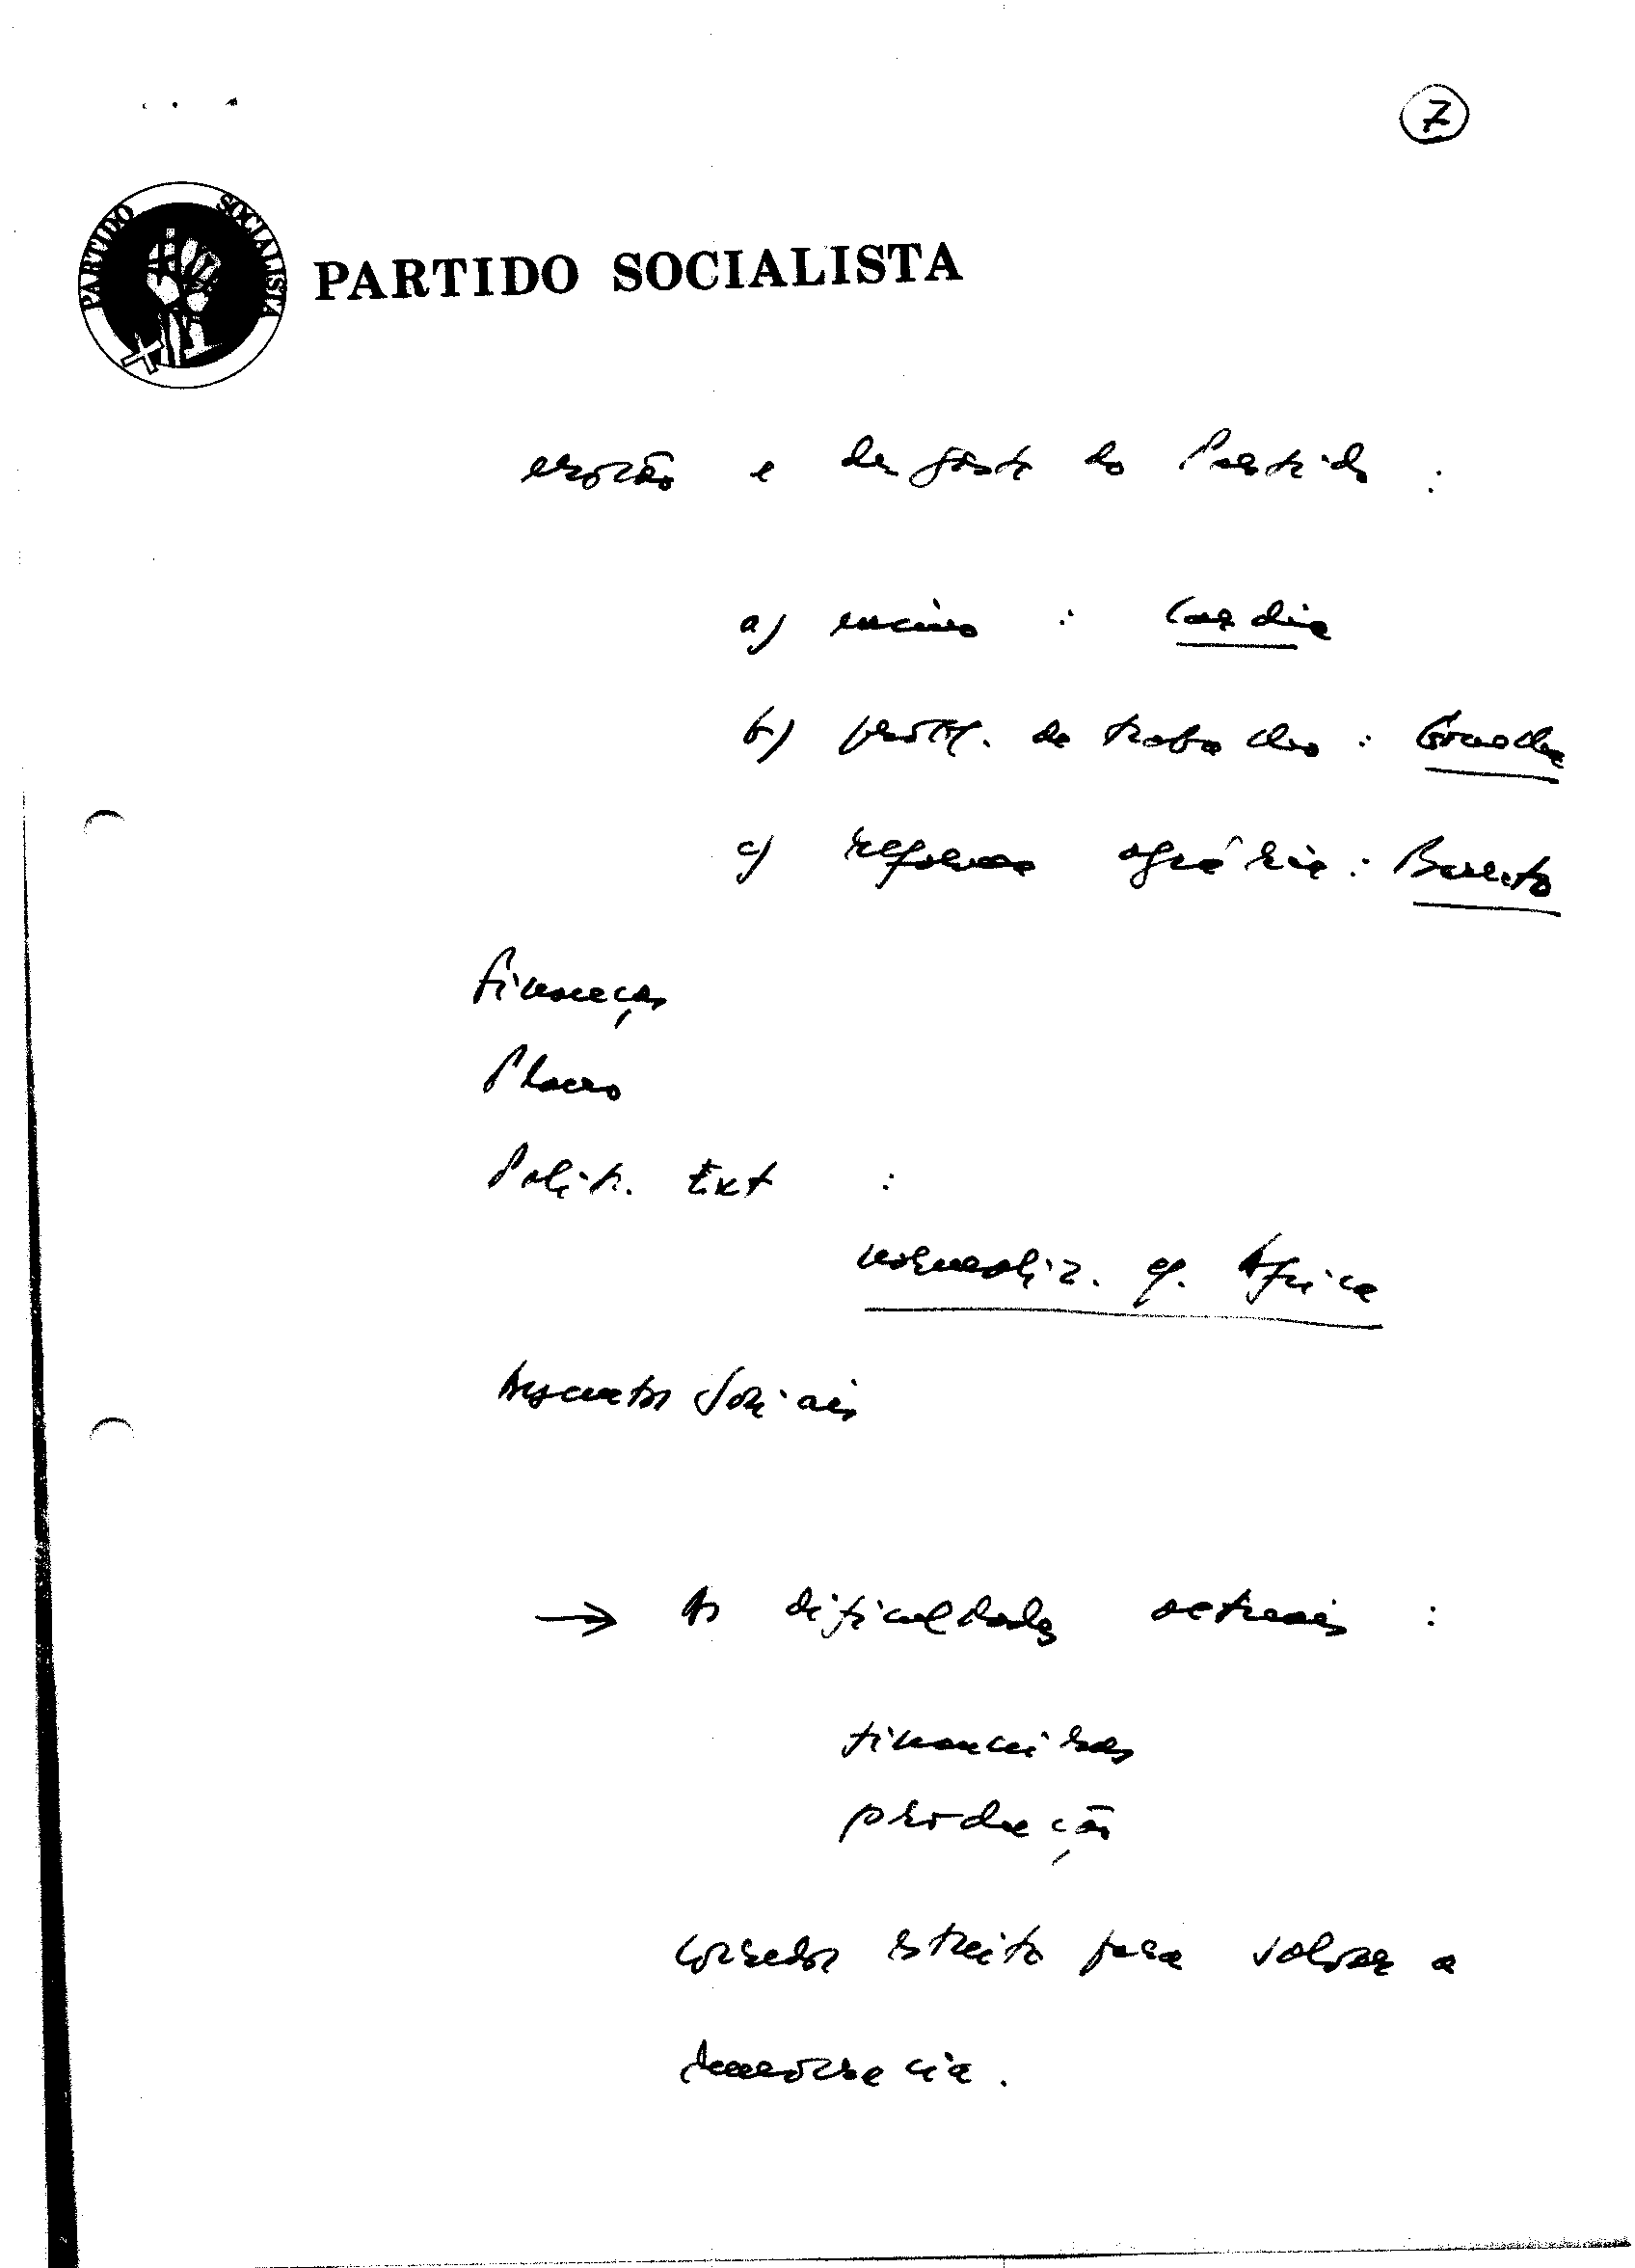 7
PARTIDO SOCIALISTA
PARTIDO SOCIALISTA
erosão e desgaste do Partido :
a) ensino : Cardia
b) probl. de trabalho : Gonelha
c) reforma agrária : Barreto
Finanças
Plano
Polít. Ext :
normaliz. c/ África
Assuntos Sociais
→ As dificuldades actuais :
financeiras
produção
corredor estreito para salvar a
democracia.